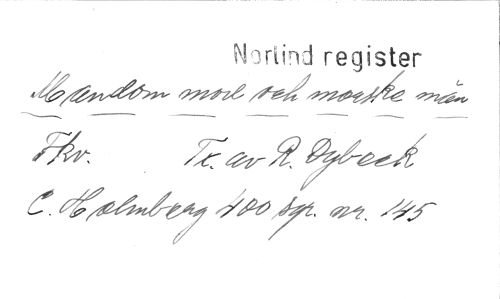 Norlind register
Mandom mod och morske män
Fkv. Tx. av R. Dybeck
C. Holmberg 400 syr. nr. 145